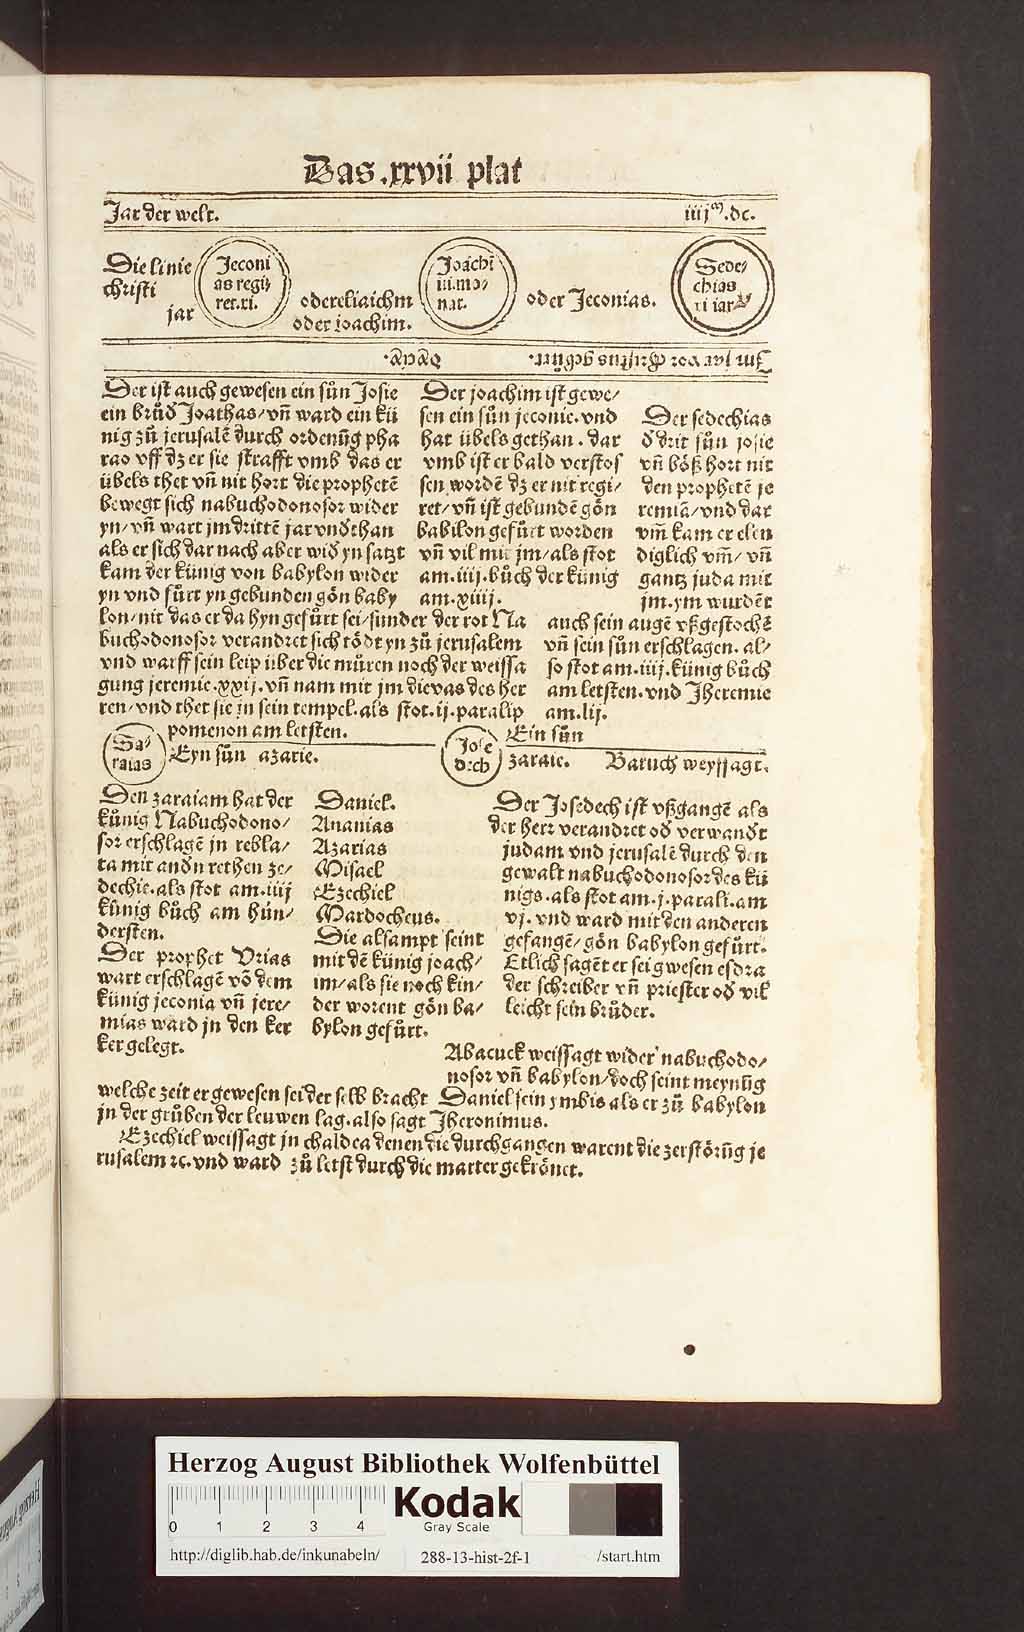 Das .xxvii plat
Jar der welt. iiijm.dc.
Die linie
christi
jar
Jeconi
as regi/
ret.xi.
odereliaichm
oder joachim.
Joachī
iii.mo/
nat.
oder Jeconias.
Sede/
chias
xi jar
Im jar vor Christus gebůrt.
Der ist auch gewesen ein sůn Josie
ein brůd Joathas/vñ ward ein kü
nig zů jerusalē durch ordenūg pha
rao vff dz er sie strafft vmb das er
übels thet vñ nit hort die prophetē
bewegt sich nabuchodonosor wider
yn/vñ wart jm drittē jar vnðthan
als er sich dar nach aber wið yn satzt
kam der künig von babylon wider
yn vnd fůrt yn gebunden gön baby
lon/nit das er da hyn gefůrt sei/sunder der rot Na
buchodonosor verandret sich tödt yn zů jerusalem
vnd warff sein leip über die můren noch der weissa
gung jeremie.xxij.vñ nam mit jm die vas des her
ren/vnd thet sie jn sein tempel.als stot.ij.paralip
pomenon am letsten.
Der joachim ist gewe/
sen ein sůn jeconie.vnd
hat übels gethan. dar
vmb ist er bald verstos
sen wordē dz er nit regi/
ret/vñ ist gebundē gön
babilon gefůrt worden
vñ vil mit jm/als stot
am.iiij.bůch der künig
am.xiiij.
Der sedechias
ð drit sůn josie
vñ böß hort nit
den prophetē je
remiā/vnd dar
vm̄ kam er elen
diglich vm̄/vñ
gantz juda mit
jm.ym wurdēt
auch sein augē vßgestochē
vñ sein sůn erschlagen.al/
so stot am.iiij.künig bůch
am letsten.vnd Jheremie
am.lij.
Sa/
raias
Eyn sůn azarie.
Jose
dech
Ein sůn
zaraie. Baruch weyssagt.
Den zaraiam hat der
künig Nabuchodono/
sor erschlagē jn rebla/
ta mit andn rethen ze/
dechie.als stot am.iiij
künig bůch am hún/
dersten.
Der prophet Vrias
wart erschlagē vō dem
künig jeconia vñ jere/
mias ward jn den ker
ker gelegt.
Daniel.
Ananias
Azarias
Misael
Ezechiel
Mardocheus.
Die alsampt seint
mit dē künig joach/
im/als sie noch kin/
der worent gön ba/
bylon gefůrt.
Der Josedech ist vßgangē als
der herr verandret oð verwandt
judam vnd jerusalē durch den
gewalt nabuchodonosor des kü
nigs.als stot am.j.parali.am
vj.vnd ward mit den anderen
gefangē/gön babylon gefůrt.
Etlich sagēt er sei gwesen esdra
der schreiber vñ priester oð vil
leicht sein brůder.
Abacuck weissagt wider nabuchodo/
nosor vñ babylon/doch seint meynūg
welche zeit er gewesen sei der selb bracht Daniel sein ymbis als er zů babylon
jn der grůben der leuwen lag.also sagt Jheronimus.
Ezechiel weissagt jn chaldea denen die durchgangen warent die zerstörūg je
rusalem ꝛc.vnd ward zů letst durch die marter gekrönet.
Herzog August Bibliothek Wolfenbüttel
0 1 2 3 4
Kodak
Gray Scale
http://diglib.hab.de/inkunabeln/ 288-13-hist-2f-1 /start.htm